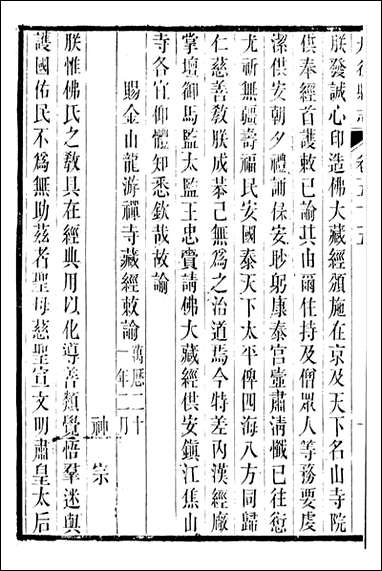 丹徒縣志　卷五十五
朕發誠心印造佛大藏經頒施在京及天下名山寺院
供奉經首護敕已諭其由爾住持及僧眾人等務要虔
潔供安朝夕禮誦保安眇躬康泰宮壼肅清懺已往愆
尤祈無疆壽福民安國泰天下太平俾四海八方同歸
仁慈善教朕成恭己無爲之治道焉今特差內漢經廠
掌壇御馬監太監王忠賫請佛大藏經供安鎭江焦山
寺各宜仰體知悉欽哉故諭
賜金山龍游禪寺藏經敕諭 萬歷二十一年二月 神宗
朕惟佛氏之敎具在經典用以化導善類覺悟羣迷與
護國佑民不爲無助茲者聖母慈聖宣文明肅皇太后